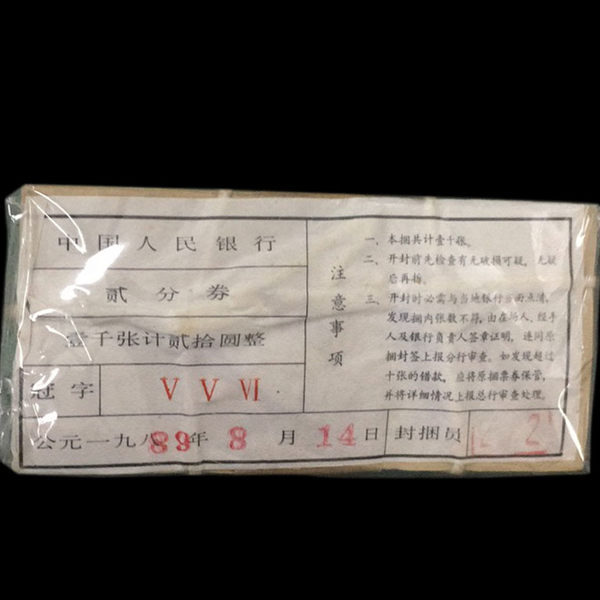 中国人民银行
贰分券
壹千张计贰拾圆整
冠字 V V VI
公元一九八89年8月14日 封捆员 2
注意事项
一、本捆共计壹千张。
二、开封前先检查有无破损可疑,无疑
后再拍。
三、开封时必需与当地银行当面点清,
发现捆内张数不符,由在场人、经手
人及银行负责人签章证明,连同原
捆封签上报分行审查。如发现超过
十张的错款,应将原捆票券保管,
并将详细情况上报总行审查处理。